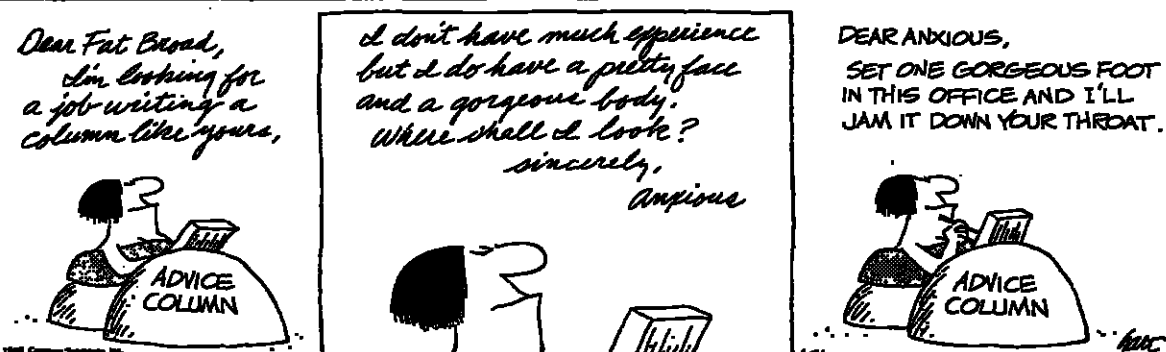 Dear Fat Broad,
I'm looking for
a job writing a
column like yours,
ADVICE
COLUMN
I don't have much experience
but I do have a pretty face
and a gorgeous body.
Where shall I look?
sincerely,
anxious
DEAR ANXIOUS,
SET ONE GORGEOUS FOOT
IN THIS OFFICE AND I'LL
JAM IT DOWN YOUR THROAT.
ADVICE
COLUMN
hart